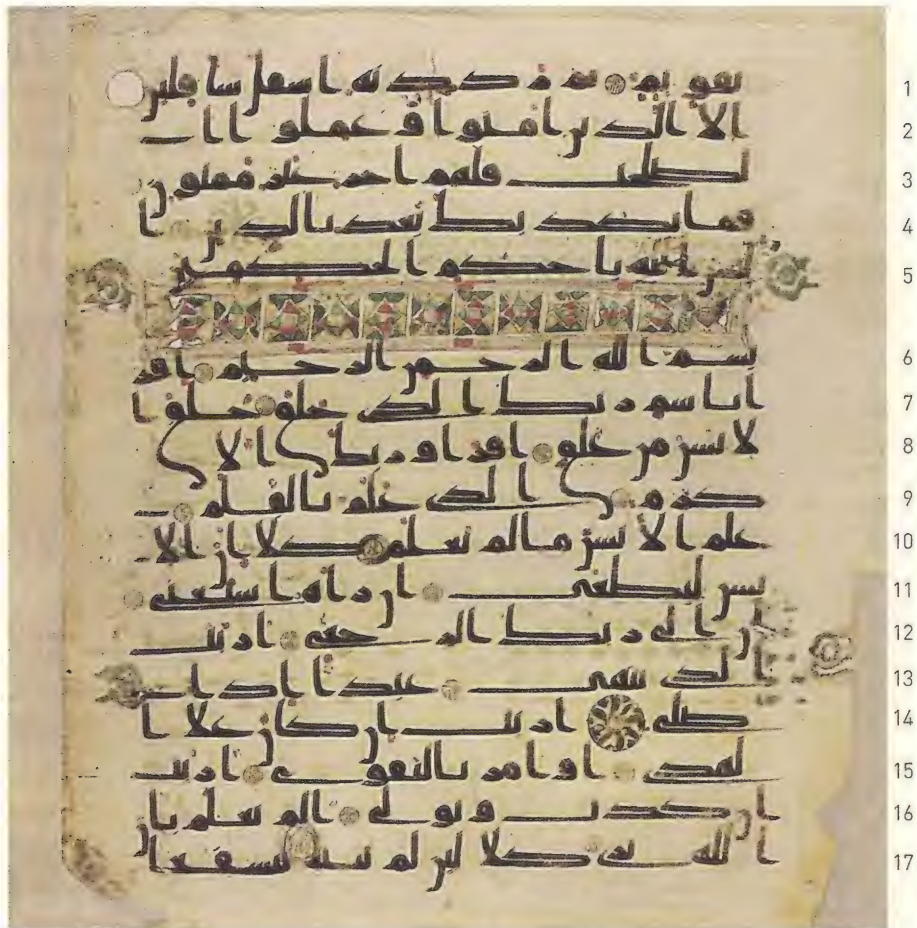 تقويم ثم رددنه اسفل سافلين 1
الا الذين امنوا و عملوا ا 2
لصلحت فلهم اجر غير ممنون 3
فما يكذبك بعد بالدين ا 4
ليس الله باحكم الحكمين 5
بسم الله الرحمن الرحيم اقر 6
ا باسم ربك الذي خلق خلق ا 7
لانسن من علق اقرا وربك الا 8
كرم الذي علم بالقلم 9
علم الانسن ما لم يعلم كلا ان الا 10
نسن ليطغى ان راه استغنى 11
ان الى ربك الرجعى اريت 12
الذي ينهى عبدا اذا 13
صلى اريت ان كان على ا 14
لهدى او امر بالتقوى اريت 15
ان كذب وتولى الم يعلم بان 16
الله يرى كلا لئن لم ينته لنسفعا 17